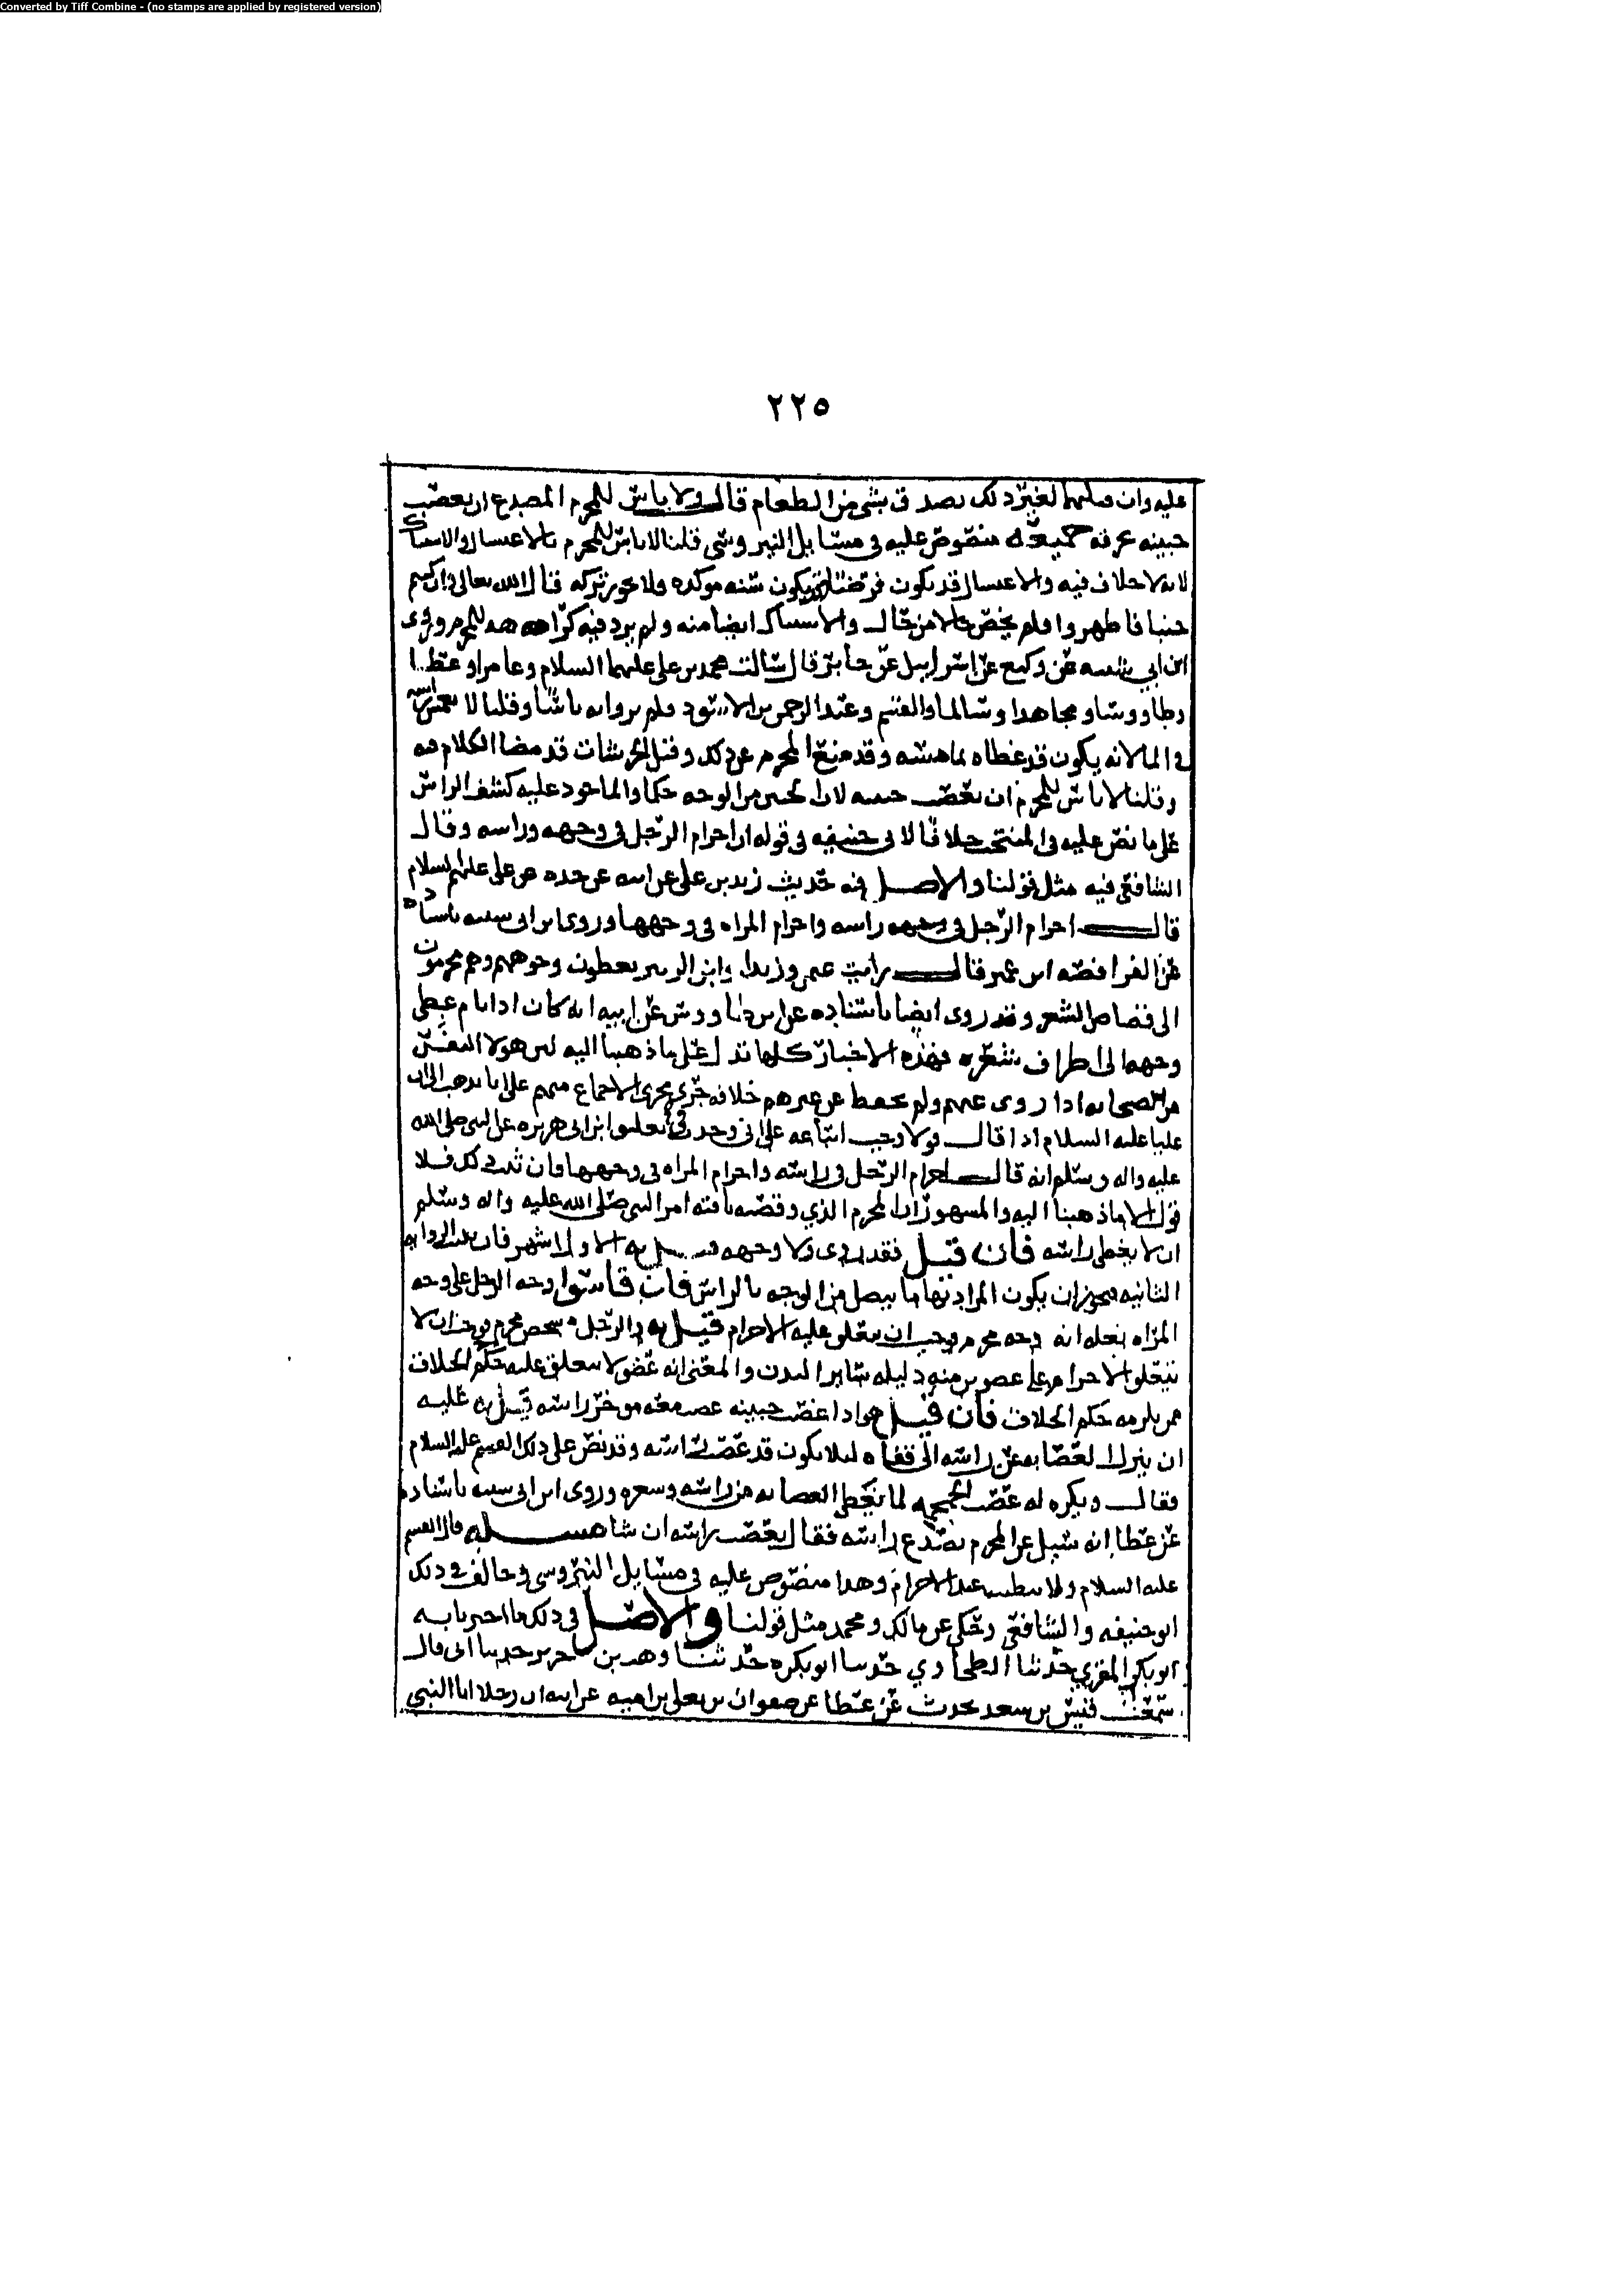 Converted by Tiff Combine - (no stamps are applied by registered version)
٢٢٥
عليه وان قتلهما لغير ذلك تصدق بشي من الطعام قال ولا باس للمحرم المصدع ان يعصب
جبينه منصوص عليه في مسايل النيروسي قلنا لا باس للمحرم بالاغتسال والاستياك
لانه لا خلاف فيه والاغتسال قد يكون فرضا وقد يكون سنه موكده ولا يجوز تركه قال الله تعالى وان كنتم
جنبا فاطهروا فلم يخص حالا من حال والاستياك ايضا منه ولم يرد فيه كراهه للمحرم وروى
ابن ابي شيبه عن وكيع عن اسراييل عن جابر قال سالت محمد بن علي عليهما السلام وعامرا وعطا
وطاووسا ومجاهدا وسالما والقسم وعبد الرحمن بن الاسود فلم يروا به باسا وقلنا لا يغمس راسه
في الما لانه يكون قد غطاه بما هنته وقد منع المحرم عن ذلك وقتل قد مضا الكلام فيه
وقلنا لا باس للمحرم ان يعصب جبينه لان الجبين من الوجه حكما والماخوذ عليه كشف الراس
على ما نص عليه في المنتخب خلافا لابي حنيفه في قوله ان احرام الرجل في وجهه وراسه وقال
الشافعي فيه مثل قولنا والاصل فيه حديث زيد بن علي عن ابيه عن جده عن علي عليهم السلام
قال احرام الرجل في راسه واحرام المراه في وجهها وروى ابن ابي شيبه باسناده
عن الفرافصه ابن عمير قال رايت عثمن وزيدا وابن الزبير يغطون وجوههم وهم محرمون
الى قصاص الشعر وقد روى ايضا باسناده عن ابن طاووس عن ابيه انه كان اذا نام غطى
وجهه الى اطراف شعره فهذه الاخبار كلها تدل على ما ذهبنا اليه لان هولا النفر
من الصحابه اذا روى عنهم ولم يحفظ عن غيرهم خلافه جرى مجرى الاجماع منهم على انا نذهب الى ان
عليا عليه السلام اذا قال قولا وجب اتباعه على اني وجدت في ابن ابي هريره عن النبي صلى الله
عليه واله وسلم انه قال احرام الرجل في راسه واحرام المراه في وجهها فان ثبت ذلك فلا
قول الا ما ذهبنا اليه والمشهور ان المحرم الذي وقصته ناقته امر النبي صلى الله عليه واله وسلم
ان لا يغطى راسه فان قيل فقد روى ولا وجهه قيل له الاول اشهر فان الروايه
الثانيه فيجوز ان يكون المراد بها ما يتصل من الوجه بالراس فان قاسوا وجه الرجل على وجه
المراه بعله انه وجه محرم فوجب ان يتعلق عليه الاحرام قيل له والرجل شخص محرم فوجب ان لا
يتعلق الاحرام على عضوين منه دليله ساير البدن والمعنى انه عضو لا يتعلق عليه حكم الحلاق
ممن يلزمه حكم الحلاق فان قيل هو اذا عصب جبينه عصب معه موخر راسه قيل له عليه
ان ينزل العصابه عن راسه الى قفاه ليلا يكون قد عصب راسه وقد نص على ذلك القسم عليه السلام
فقال ويكره له عصب الجمجمه لما يغطى العصابه من راسه وشعره وروى ابن ابي شيبه باسناده
عن عطا انه سيل عن المحرم يصدع راسه فقال يعصب راسه ان شا مسله قال القسم
عليه السلام ولا يتطيب عند الاحرام وهذا منصوص عليه في مسايل النيروسي وخالف في ذلك
ابو حنيفه والشافعي وحكي عن مالك ومحمد مثل قولنا والاصل في ذلك ما اخبرنا به
ابو بكر المقري حدثنا الطحاوي حدثنا ابو بكره حدثنا وهب بن جرير حدثنا ابي قال
سمعت قيس بن سعد يحدث عن عطا عن صفوان بن يعلى بن اميه عن ابيه ان رجلا اتا النبي